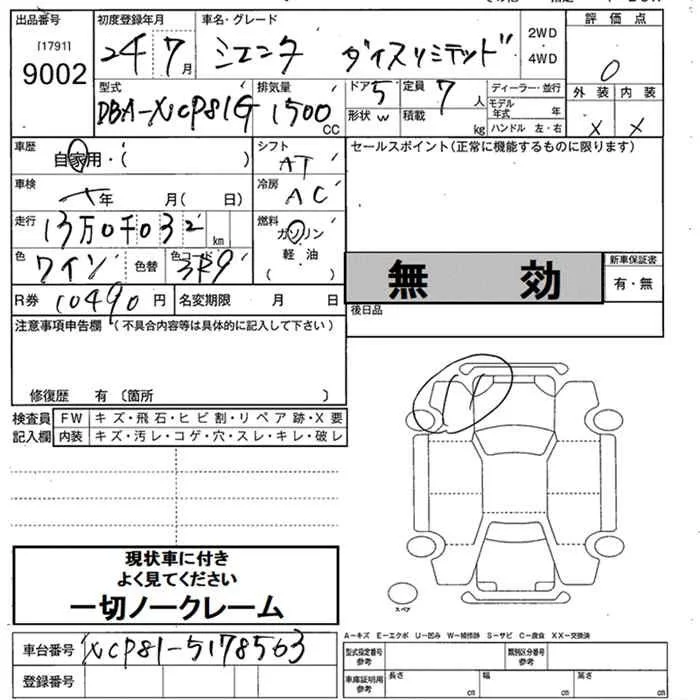 出品番号 初度登録年月 車名・グレード 評価点
[1791] 2WD
9002 24 7月 シエンタ ダイスリミテッド ・4WD 0
型式 排気量 ドア 定員 ディーラー・並行 外装 内装
DBA-XNCP81G 1500CC 5 7人 モデル年式 年 X X
形状 W 積載 kg ハンドル 左・右
車歴 シフト セールスポイント(正常に機能するものに限ります)
自家用・( ) AT
車検 冷房
年 月( 日) AC
走行 燃料
13万0千032km ガソリン
色 色替 色コード 軽油
ワイン 3R9 ( )
無効 新車保証書
有・無
R券 10490円 名変期限 月 日 後日品
注意事項申告欄(不具合内容等は具体的に記入して下さい)
修復歴 有〔箇所 〕
検査員 FW キズ・飛石・ヒビ割・リペア跡・X要
記入欄 内装 キズ・汚レ・コゲ・穴・スレ・キレ・破レ
現状車に付き
よく見てください
一切ノークレーム
スペア
A-キズ E-エクボ U-凹み W-補修跡 S-サビ C-腐食 XX-交換済
車台番号 XCP81-5178563
型式指定番号 参考 類別区分番号 参考
登録番号
車庫証明用 参考 長さ cm 幅 cm 高さ cm